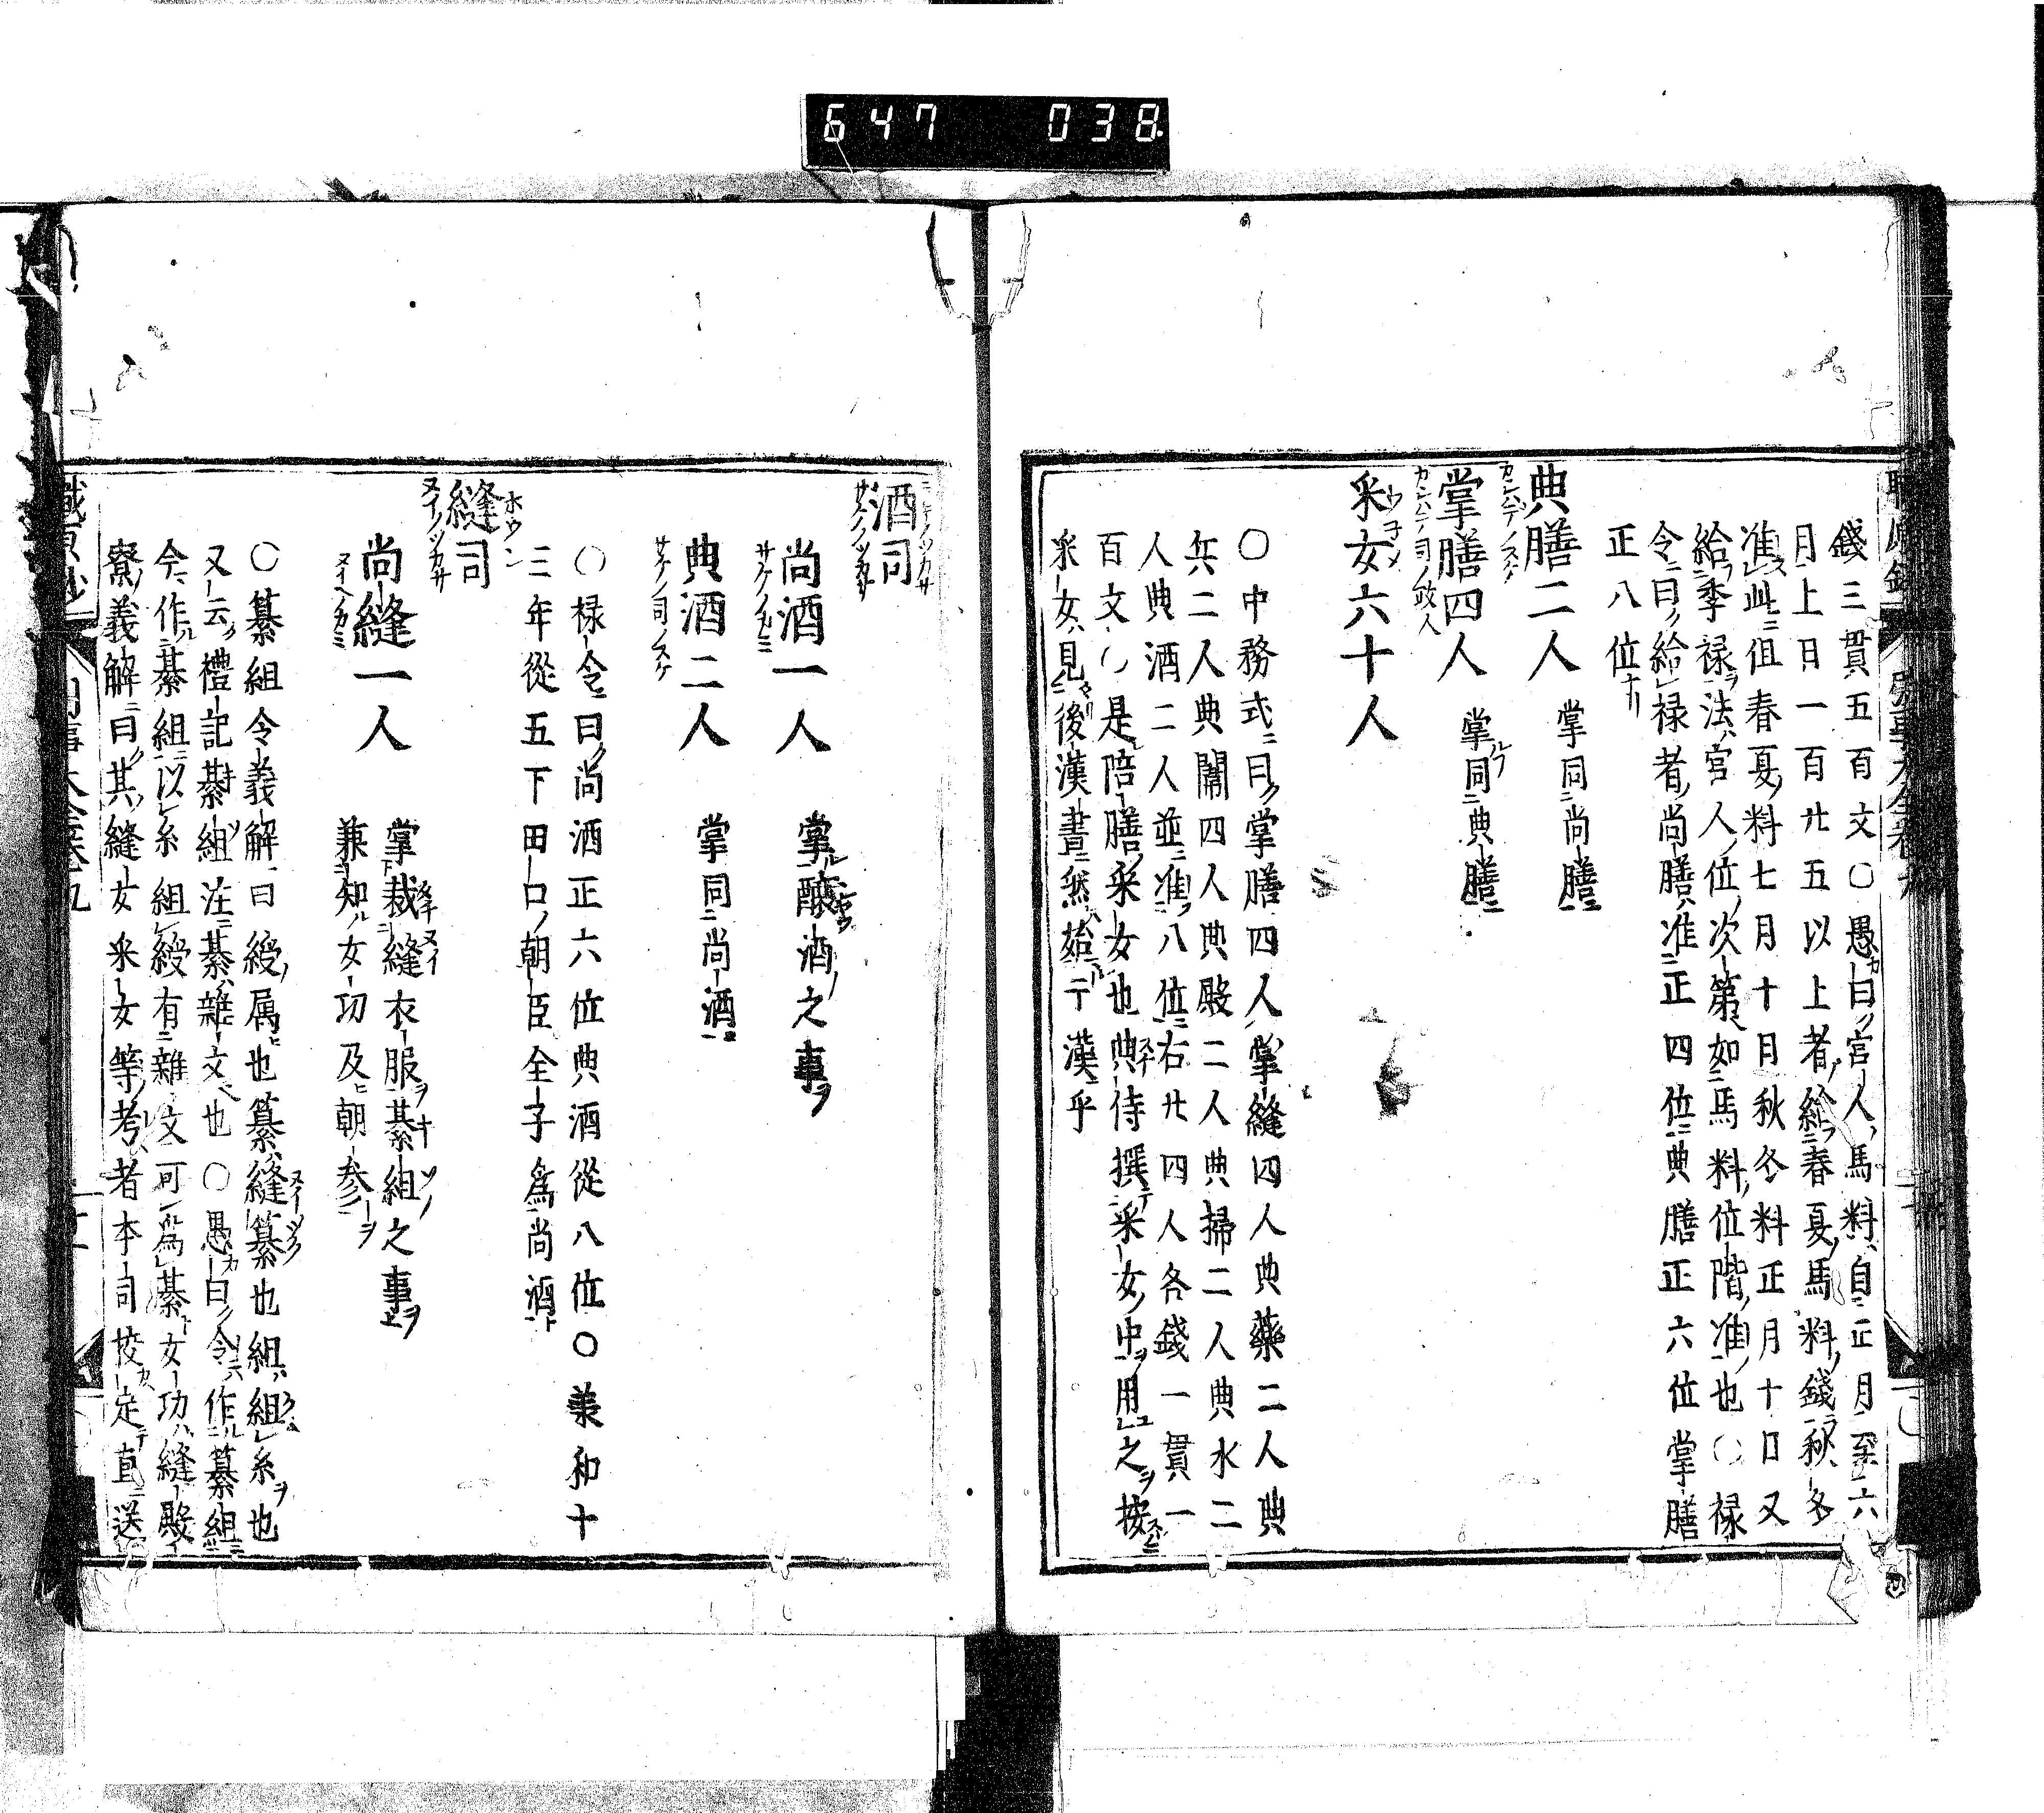 647 038
錢三貫五百文〇愚曰宮人馬料自正月至六
月上日一百廿五以上者給春夏馬料錢秋冬
准此但春夏料七月十日秋冬料正月十日又
給季禄法宮人位次第如馬料位階准也〇禄
令曰給禄者尚膳准正四位典膳正六位掌膳
正八位
典膳二人 掌同尚膳
掌膳四人 掌同典膳
采女六十人
〇中務式曰掌膳四人掌縫四人典藥二人典
兵二人典闈四人典殿二人典掃二人典水二
人典酒二人並准八位右廿四人各錢一貫一
百文〇是陪膳采女也典侍撰采女中用之按
采女見後漢書然始于漢乎
酒司
尚酒一人 掌釀酒之事
典酒二人 掌同尚酒
〇禄令曰尚酒正六位典酒從八位〇美和十
三年從五下田口朝臣全子為尚酒
縫司
尚縫一人 掌裁縫衣服綦組之事
兼知女功及朝参
〇纂組令義解曰綬属也纂縫纂也組組糸也
又云禮記綦組注綦雜文也〇愚曰令作纂組
今作綦組以糸組綬有雜文可為綦女功縫殿
寮義解曰其縫女采女等考者本司校定直送